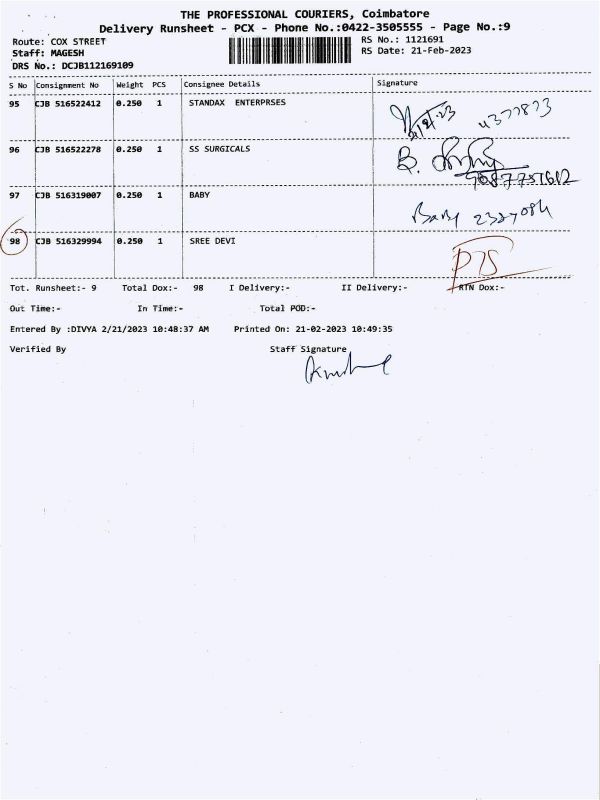 THE PROFESSIONAL COURIERS, Coimbatore
Delivery Runsheet - PCX - Phone No.:0422-3505555 - Page No.:9
Route: COX STREET
Staff: MAGESH
DRS No.: DCJB112169109
RS No.: 1121691
RS Date: 21-Feb-2023
S No Consignment No Weight PCS Consignee Details Signature
95 CJB 516522412 0.250 1 STANDAX ENTERPRSES
96 CJB 516522278 0.250 1 SS SURGICALS
97 CJB 516319007 0.250 1 BABY Baby
98 CJB 516329994 0.250 1 SREE DEVI
Tot. Runsheet:- 9 Total Dox:- 98 I Delivery:- II Delivery:- RTN Dox:-
Out Time:- In Time:- Total POD:-
Entered By :DIVYA 2/21/2023 10:48:37 AM Printed On: 21-02-2023 10:49:35
Verified By Staff Signature